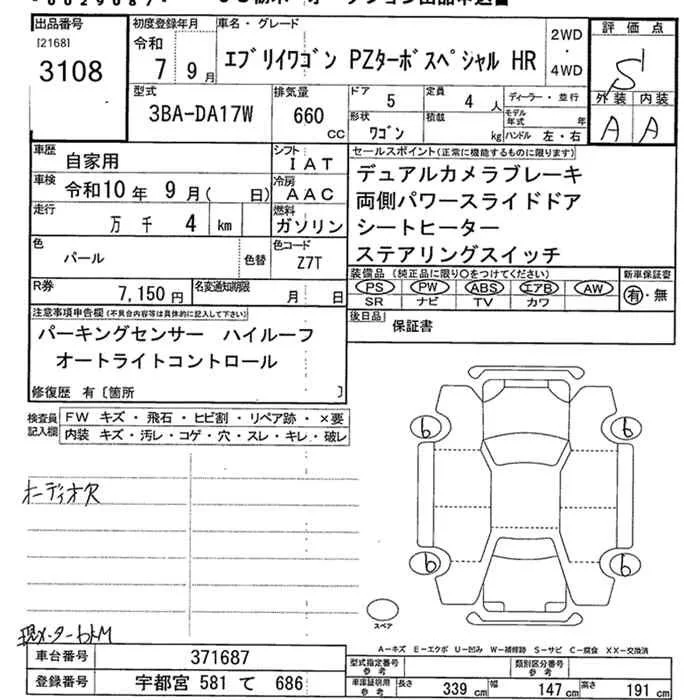 出品番号 初度登録年月 車名・グレード 2WD・4WD 評価点
[2168]
3108 令和 7 9月 エブリイワゴン PZターボスペシャル HR S
外装 内装
A A
型式 排気量 ドア 5 定員 4人 ディーラー・並行
3BA-DA17W 660 cc 形状 ワゴン 積載 kg モデル年式 年 ハンドル 左・右
車歴 自家用 シフト IAT
車検 令和10年 9月( 日) 冷房 AAC
走行 万 千 4 km 燃料 ガソリン
色 パール 色替 色コード Z7T
R券 7,150円 名変通知期限 月 日
セールスポイント(正常に機能するものに限ります)
デュアルカメラブレーキ
両側パワースライドドア
シートヒーター
ステアリングスイッチ
装備品(純正品に限り○をつけてください) 新車保証書
PS PW ABS エアB AW 有・無
SR ナビ TV カワ
後日品 保証書
注意事項申告欄(不具合内容等は具体的に記入して下さい)
パーキングセンサー ハイルーフ
オートライトコントロール
修復歴 有〔箇所 〕
検査員記入欄 FW キズ・飛石・ヒビ割・リペア跡・×要
内装 キズ・汚レ・コゲ・穴・スレ・キレ・破レ
オーディオ穴
6 6
6 6
スペア
現メーター6kM
A-キズ E-エクボ U-凹み W-補修跡 S-サビ C-腐食 XX-交換済
車台番号 371687
登録番号 宇都宮 581 て 686
型式指定番号 参考 類別区分番号 参考
車庫証明用 参考 長さ 339 cm 幅 147 cm 高さ 191 cm